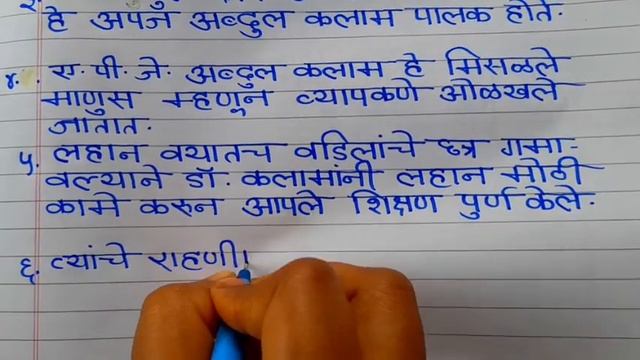 हे अपज अब्दुल कलाम पालक होते.
४. ए. पी. जे. अब्दुल कलाम हे मिसळले
माणुस म्हणून व्यापकणे ओळखले
जातात.
५. लहान वयातच वडिलांचे छत्र गमा-
वल्याने डॉ. कलामांनी लहान मोठी
कामे करुन आपले शिक्षण पुर्ण केले.
६. त्यांचे राहणी